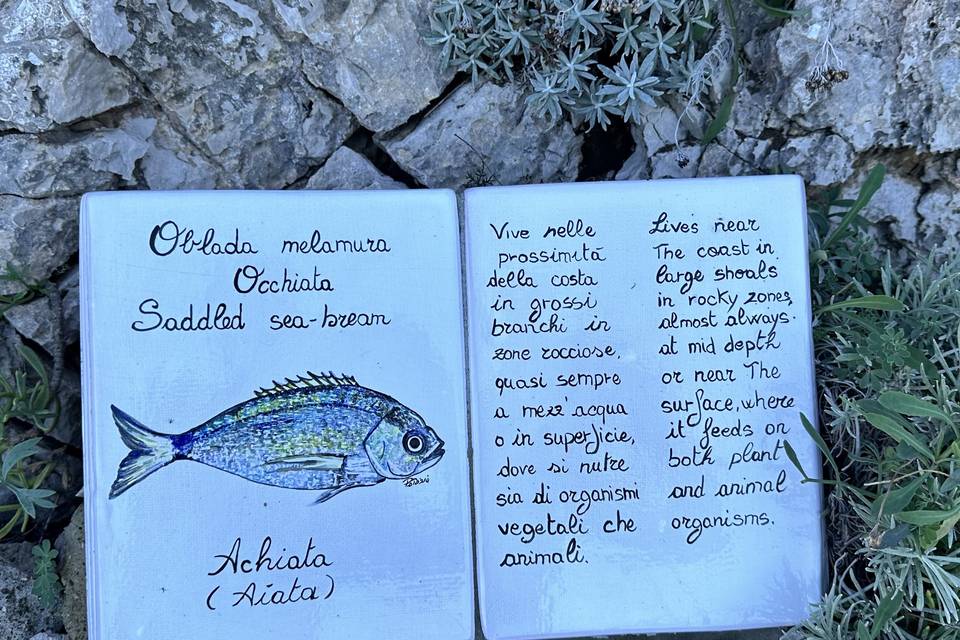 Oblada melamura
Occhiata
Saddled sea-bream
Achiata
(Aiata)
Vive nelle
prossimità
della costa
in grossi
branchi in
zone rocciose,
quasi sempre
a mezz'acqua
o in superficie,
dove si nutre
sia di organismi
vegetali che
animali.
Lives near
The coast in
large shoals
in rocky zones,
almost always
at mid depth
or near The
surface, where
it feeds on
both plant
and animal
organisms.